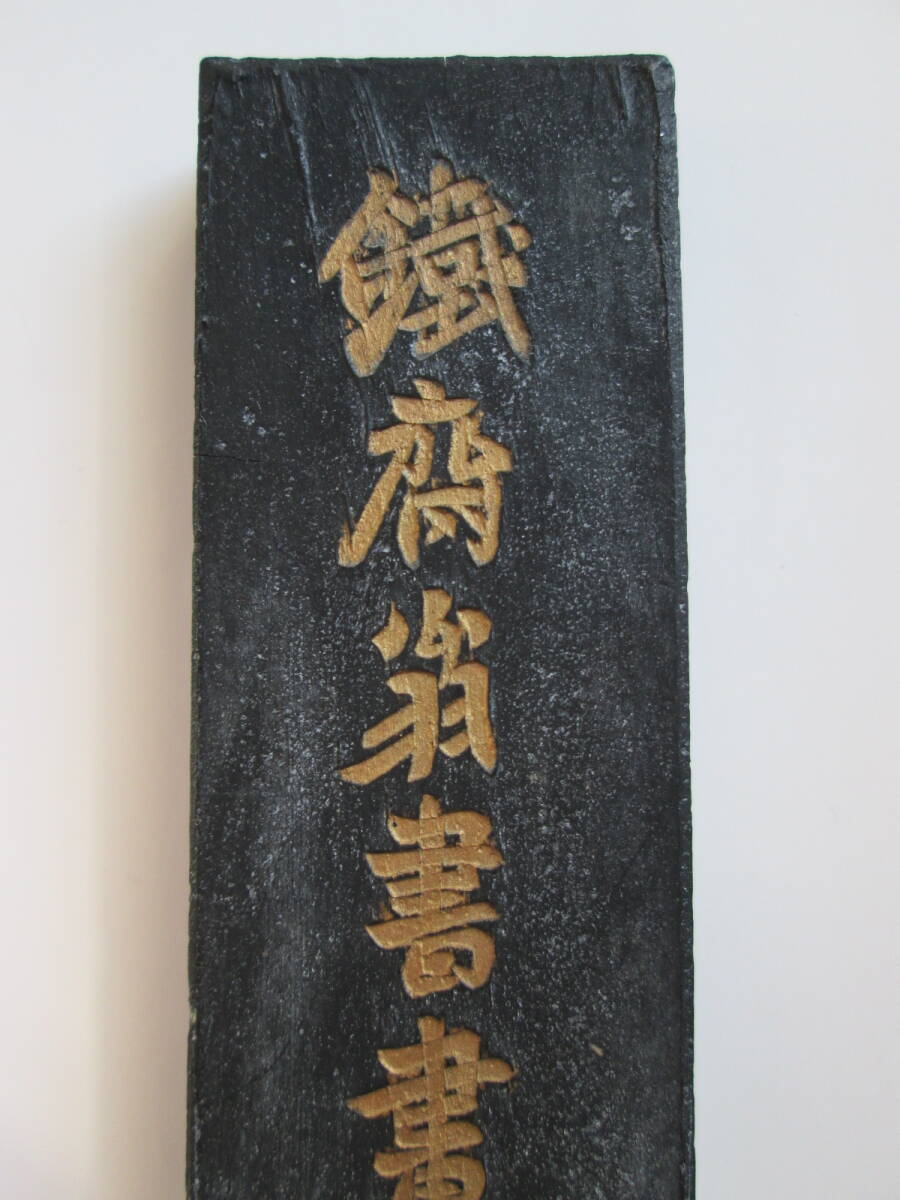 鐵齋翁書畫